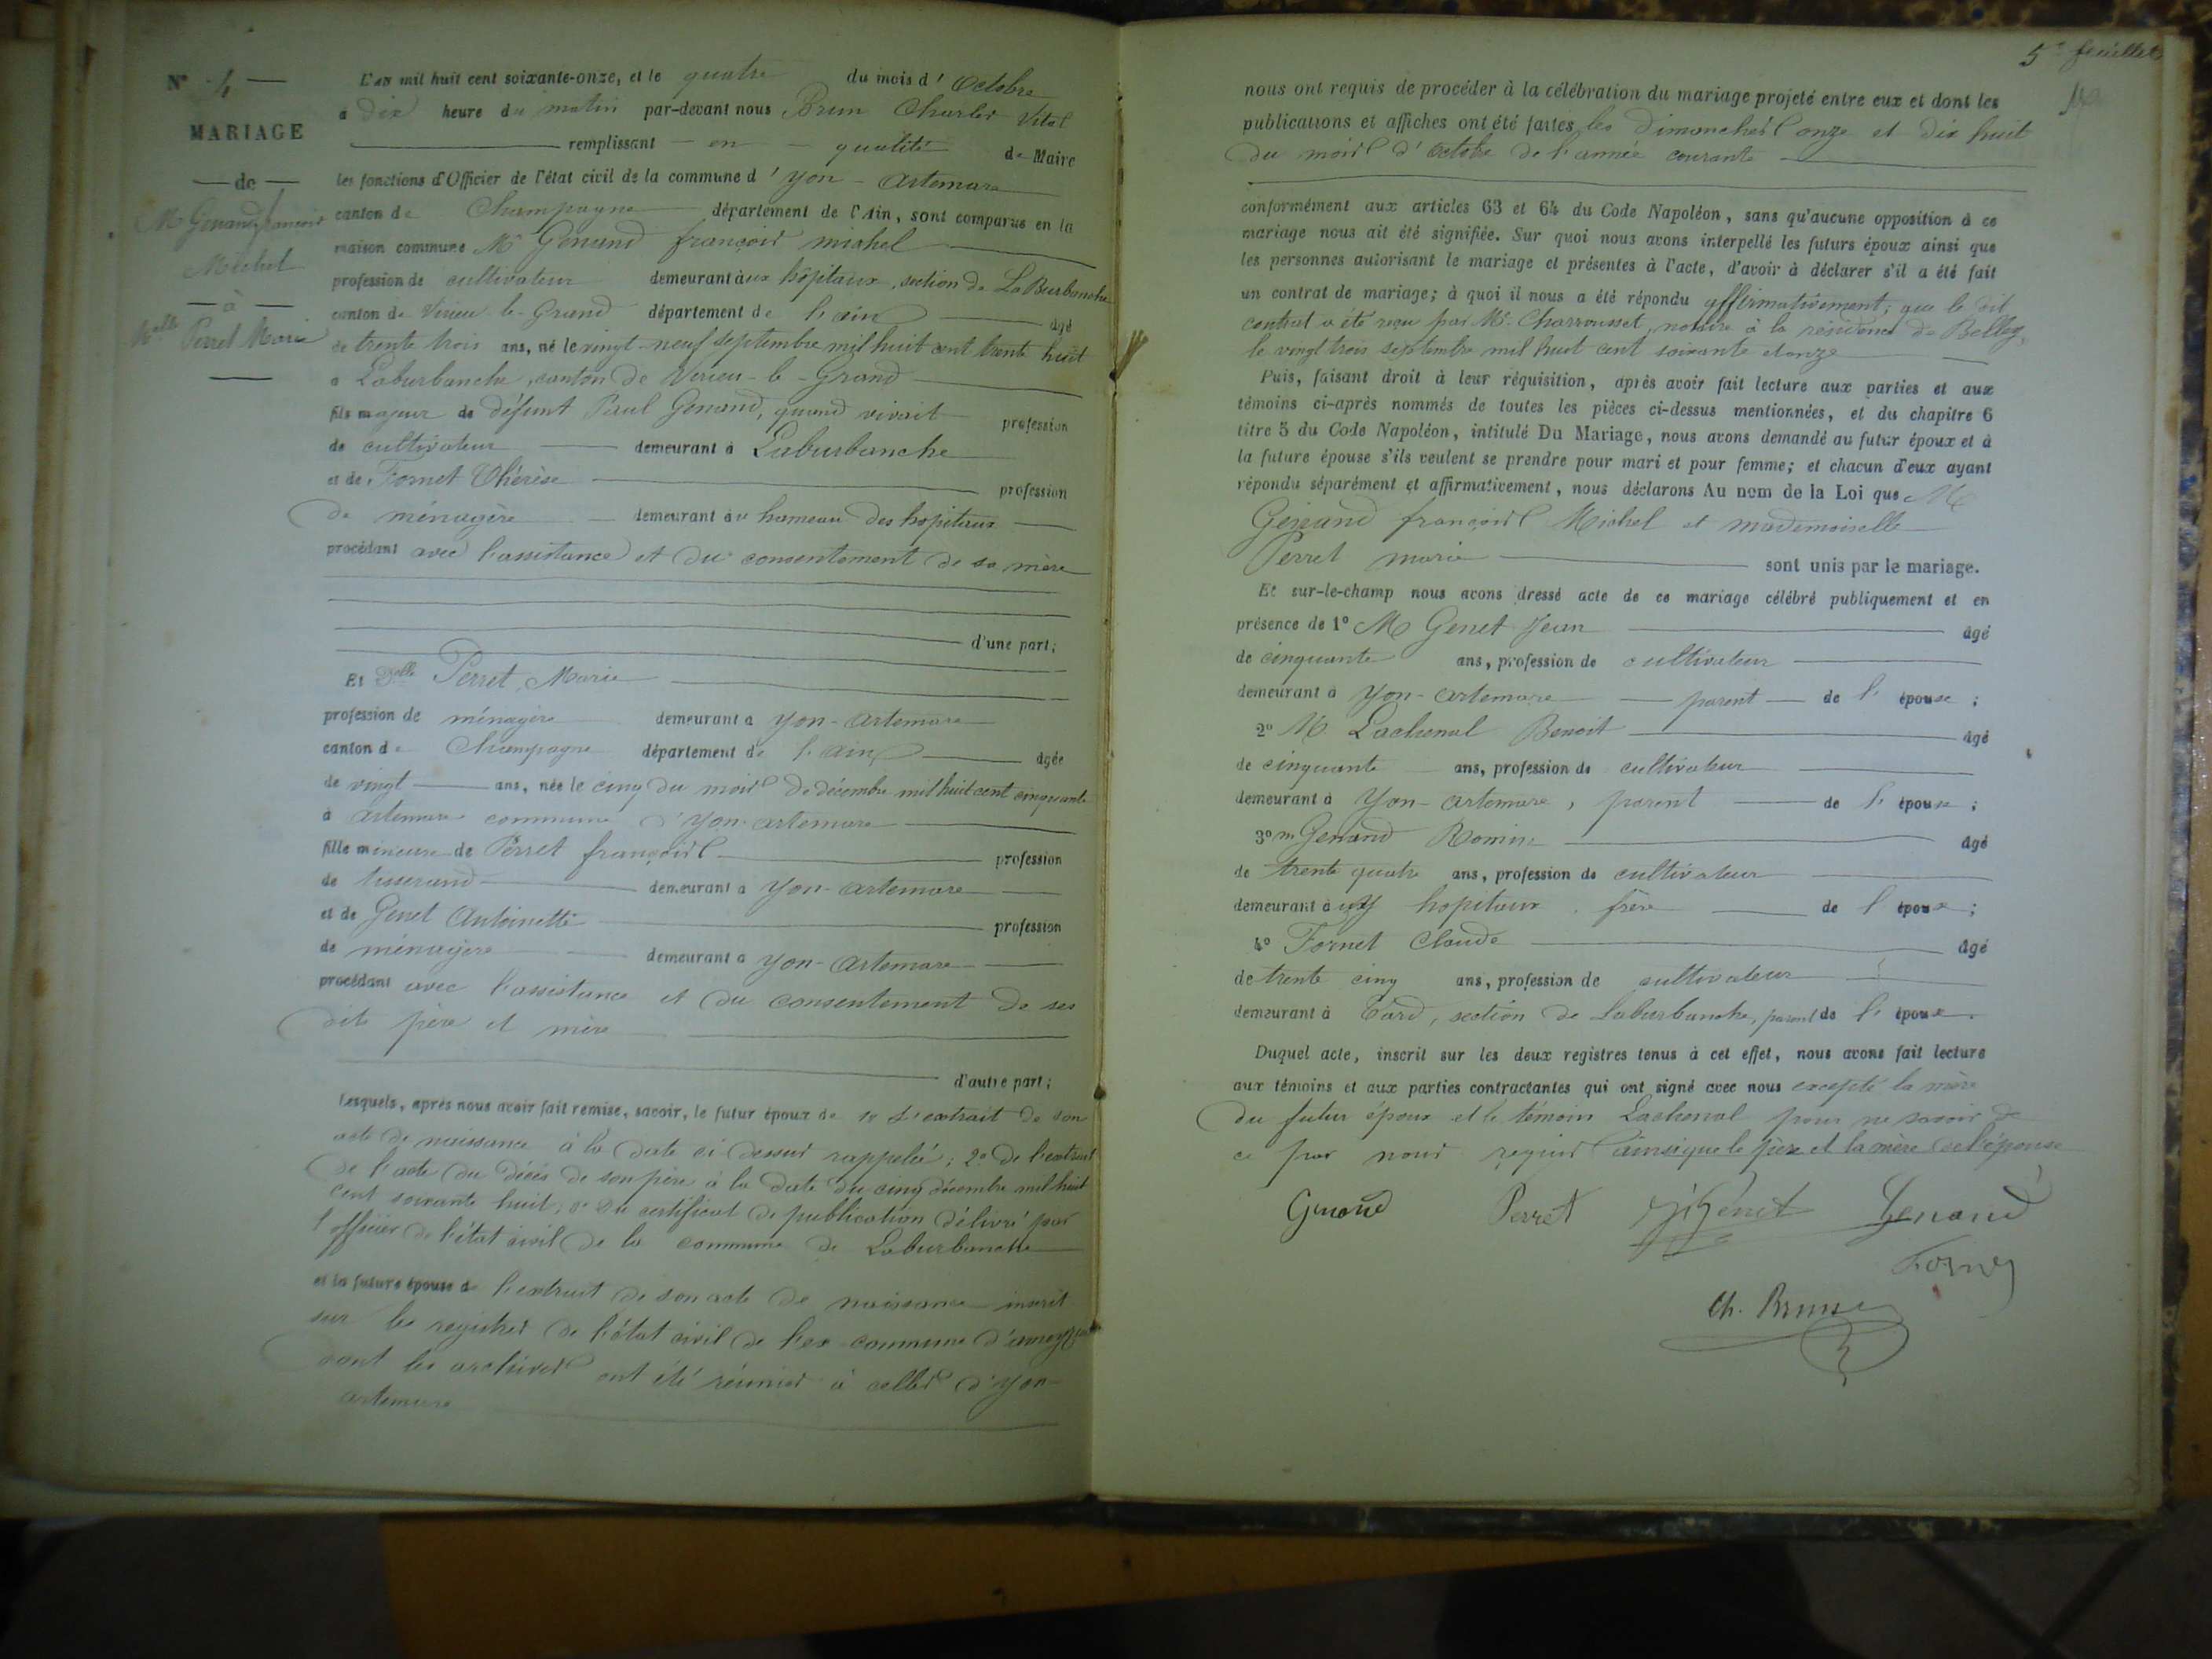 N° 4
MARIAGE
de
M Genand françois
Michel
à
Melle Perret Marie
L'an mil huit cent soixante-onze, et le quatre du mois d' Octobre
a dix heure du matin par-devant nous Brun Charles Vital
remplissant en qualité de Maire
les fonctions d'Officier de l'état civil de la commune d' yon - artemare
canton de Champagne département de l'Ain, sont comparus en la
maison commune M Genand françois michel
profession de cultivateur demeurant aux hôpitaux, section de La Burbanche
canton de Virieu le - Grand département de l'ain âgé
de trente trois ans, né le vingt - neuf septembre mil huit cent trente huit
a Laburbanche, canton de Virieu - le - Grand
fils majeur de défunt Paul Genand, quand vivait profession
de cultivateur demeurant à Laburbanche
et de Fornet Thérèse profession
de ménagère demeurant au hameau des hopitaux
procédant avec l'assistance et du consentement de sa mère
d'une part;
Et Delle Perret Marie
profession de ménagère demeurant a yon - artemare
canton de Champagne département de l'ain âgée
de vingt ans, née le cinq du mois de décembre mil huit cent cinquante
à artemare commune d'yon-artemare
fille mineure de Perret françois profession
de tisserand demeurant a yon - artemare
et de Genet Antoinette profession
de ménagère demeurant a yon - artemare
procédant avec l'assistance et du consentement de ses
dits père et mère
d'autre part;
Lesquels, après nous avoir fait remise, savoir, le futur époux de 1° l'extrait de son
acte de naissance à la date ci dessus rappelée; 2° de l'extrait
de l'acte du décès de son père à la date du cinq décembre mil huit
cent soixante huit; 3° du certificat de publication délivré par
l'officier de l'état civil de la commune de Laburbanche
et la future épouse de l'extrait de son acte de naissance inscrit
sur les registres de l'état civil de l'ex - commune d'ameyzieu
dont les archives ont été réunies à celles d'yon-
artemare
5e feuillet
nous ont requis de procéder à la célébration du mariage projeté entre eux et dont les
publications et affiches ont été faites les dimanches onze et dix huit
du mois d'octobre de l'année courante
conformément aux articles 63 et 64 du Code Napoléon, sans qu'aucune opposition à ce
mariage nous ait été signifiée. Sur quoi nous avons interpellé les futurs époux ainsi que
les personnes autorisant le mariage et présentes à l'acte, d'avoir à déclarer s'il a été fait
un contrat de mariage; à quoi il nous a été répondu affirmativement; que le dit
contrat a été reçu par Me Charrousset, notaire à la résidence de Belley,
le vingt trois septembre mil huit cent soixante et onze
Puis, faisant droit à leur réquisition, après avoir fait lecture aux parties et aux
témoins ci-après nommés de toutes les pièces ci-dessus mentionnées, et du chapitre 6
titre 5 du Code Napoléon, intitulé Du Mariage, nous avons demandé au futur époux et à
la future épouse s'ils veulent se prendre pour mari et pour femme; et chacun d'eux ayant
répondu séparément et affirmativement, nous déclarons Au nom de la Loi que M
Genand françois Michel et mademoiselle
Perret marie sont unis par le mariage.
Et sur-le-champ nous avons dressé acte de ce mariage célébré publiquement et en
présence de 1° M Genet Jean âgé
de cinquante ans, profession de cultivateur
demeurant à yon - artemare parent de l' épouse;
2° M Lachenal Benoit âgé
de cinquante ans, profession de cultivateur
demeurant à Yon - artemare, parent de l' épouse;
3° m Genand Romin âgé
de trente quatre ans, profession de cultivateur
demeurant aux hopitaux frère de l'époux;
4° Fornet Claude âgé
de trente cinq ans, profession de cultivateur
demeurant à Tard, section de Laburbanche, parent de l' époux.
Duquel acte, inscrit sur les deux registres tenus à cet effet, nous avons fait lecture
aux témoins et aux parties contractantes qui ont signé avec nous excepté la mère
du futur époux et le témoin Lachenal pour ne savoir de
ce par nous requis ainsi que le père et la mère de l'épouse
Genand Perret Genet Genand
Fornet
Ch. Brun